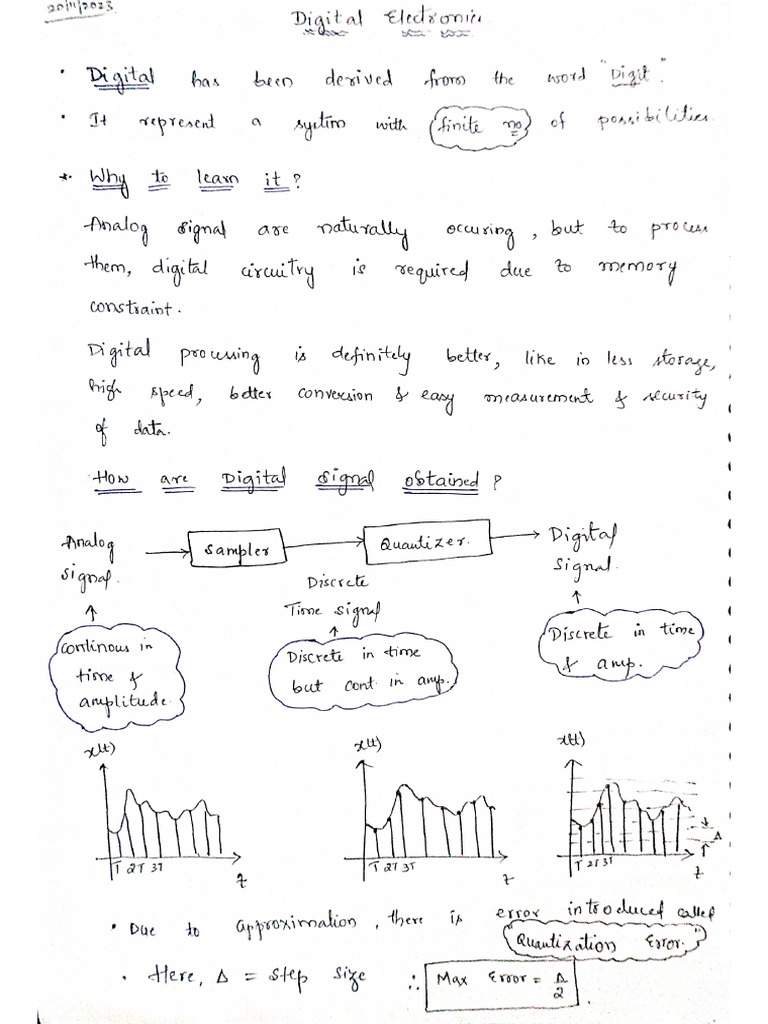 20/11/2023
Digital Electronics
• Digital has been derived from the word "Digit."
• It represent a system with finite no of possibilities.
* Why to learn it?
Analog signal are naturally occuring, but to process
them, digital circuitry is required due to memory
constraint.
Digital processing is definitely better, like in less storage,
high speed, better conversion & easy measurement & security
of data.
How are Digital signal obtained?
Analog signal.
Sampler
Quantizer.
Digital signal.
Discrete
Time signal
Continous in
time &
amplitude.
Discrete in time
but cont. in amp.
Discrete in time
& amp.
x(t)
x(t)
x(t)
T 2T 3T
t
T 2T 3T
t
T 2T 3T
t
Δ
• Due to approximation, there is error introduced called
"Quantization Error."
• Here, Δ = step size ∴ Max Error = Δ/2.